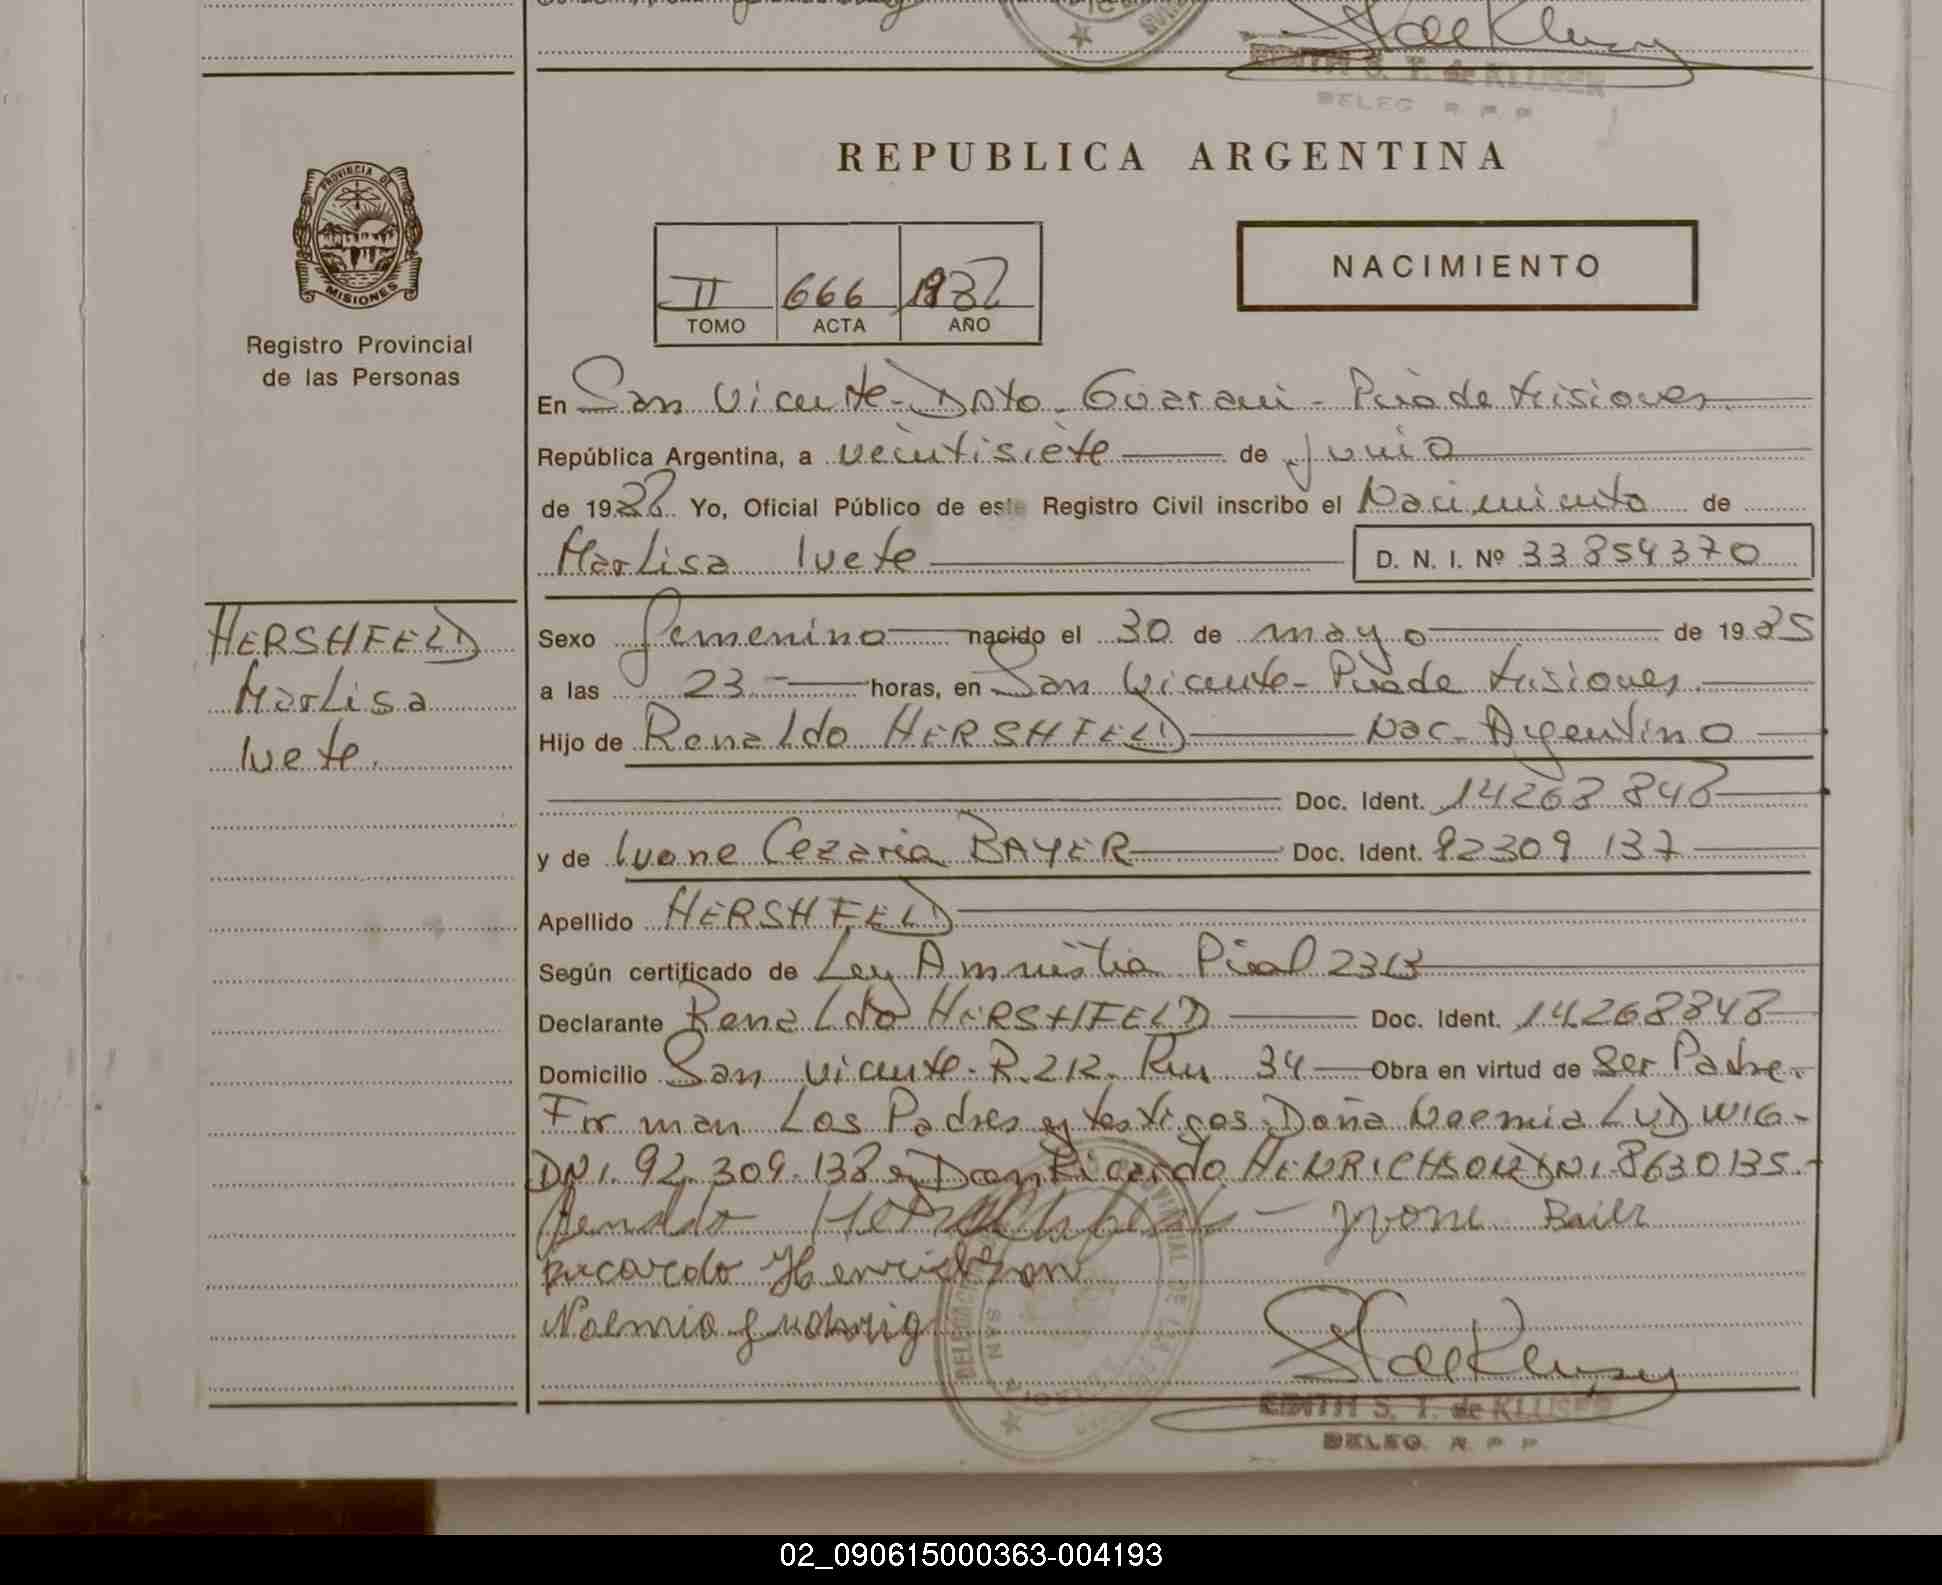 EDITH S. T. de KLUSER
DELEG. R. P. P
PROVINCIA DE
MISIONES
Registro Provincial
de las Personas
REPUBLICA ARGENTINA
II 666
TOMO ACTA AÑO
NACIMIENTO
En San Vicente - Dpto. Guarani - Pcia de Misiones
República Argentina, a veintisiete de Junio
de 19 Yo, Oficial Público de este Registro Civil inscribo el Nacimiento de
Marlisa Ivete D. N. I. Nº 33 854370
HERSHFELD
Marlisa
Ivete.
Sexo femenino nacido el 30 de mayo de 1985
a las 23 - horas, en San Vicente - Pcia de Misiones.
Hijo de Renaldo HERSHFELD Nac - Argentino
Doc. Ident. 14268848
y de Ivone Cezaria BAYER Doc. Ident. 92309 137
Apellido HERSHFELD
Según certificado de Ley Amnistia Pcial 2313
Declarante Renaldo HERSHFELD Doc. Ident. 14268848
Domicilio San Vicente - R. 212. Km 34 Obra en virtud de Ser Padre.
Firman Los Padres y testigos: Doña Noemia LUDWIG -
DNI. 92.309.138 y Don Ricardo HENRICHSON DNI. 8630135. -
Renaldo - Yvone Baier
Ricardo Henrichson
Noemia Ludwig
EDITH S. T. de KLUSER
DELEG. R. P. P
02_090615000363-004193